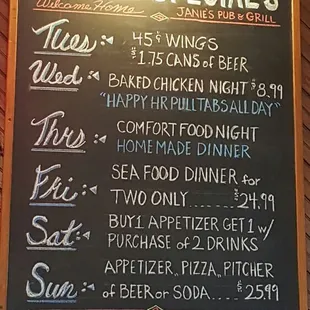 Welcome Home
JANIE'S PUB & GRILL
Tues: 45¢ WINGS
$1.75 CANS of BEER
Wed: BAKED CHICKEN NIGHT $8.99
"HAPPY HR PULLTABS ALL DAY"
Thrs: COMFORT FOOD NIGHT
HOMEMADE DINNER
Fri: SEA FOOD DINNER for
TWO ONLY ...... $24.99
Sat: BUY 1 APPETIZER GET 1 w/
PURCHASE of 2 DRINKS
Sun: APPETIZER, PIZZA, PITCHER
of BEER or SODA ... $25.99